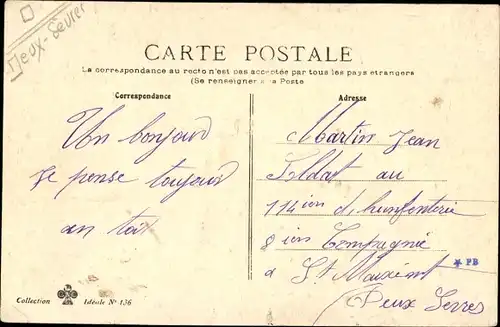 Deux-Sevres
CARTE POSTALE
La correspondance au recto n'est pas acceptée par tous les pays étrangers
(Se renseigner à la Poste
Correspondance
Adresse
Un bonjour
Je pense toujour
an toi
Martin Jean
Soldat au
114ien d'hunfonterie
8 ien Compagnie
a St Maixent
Deux Sevres
* PB
Collection
Idéale N° 136